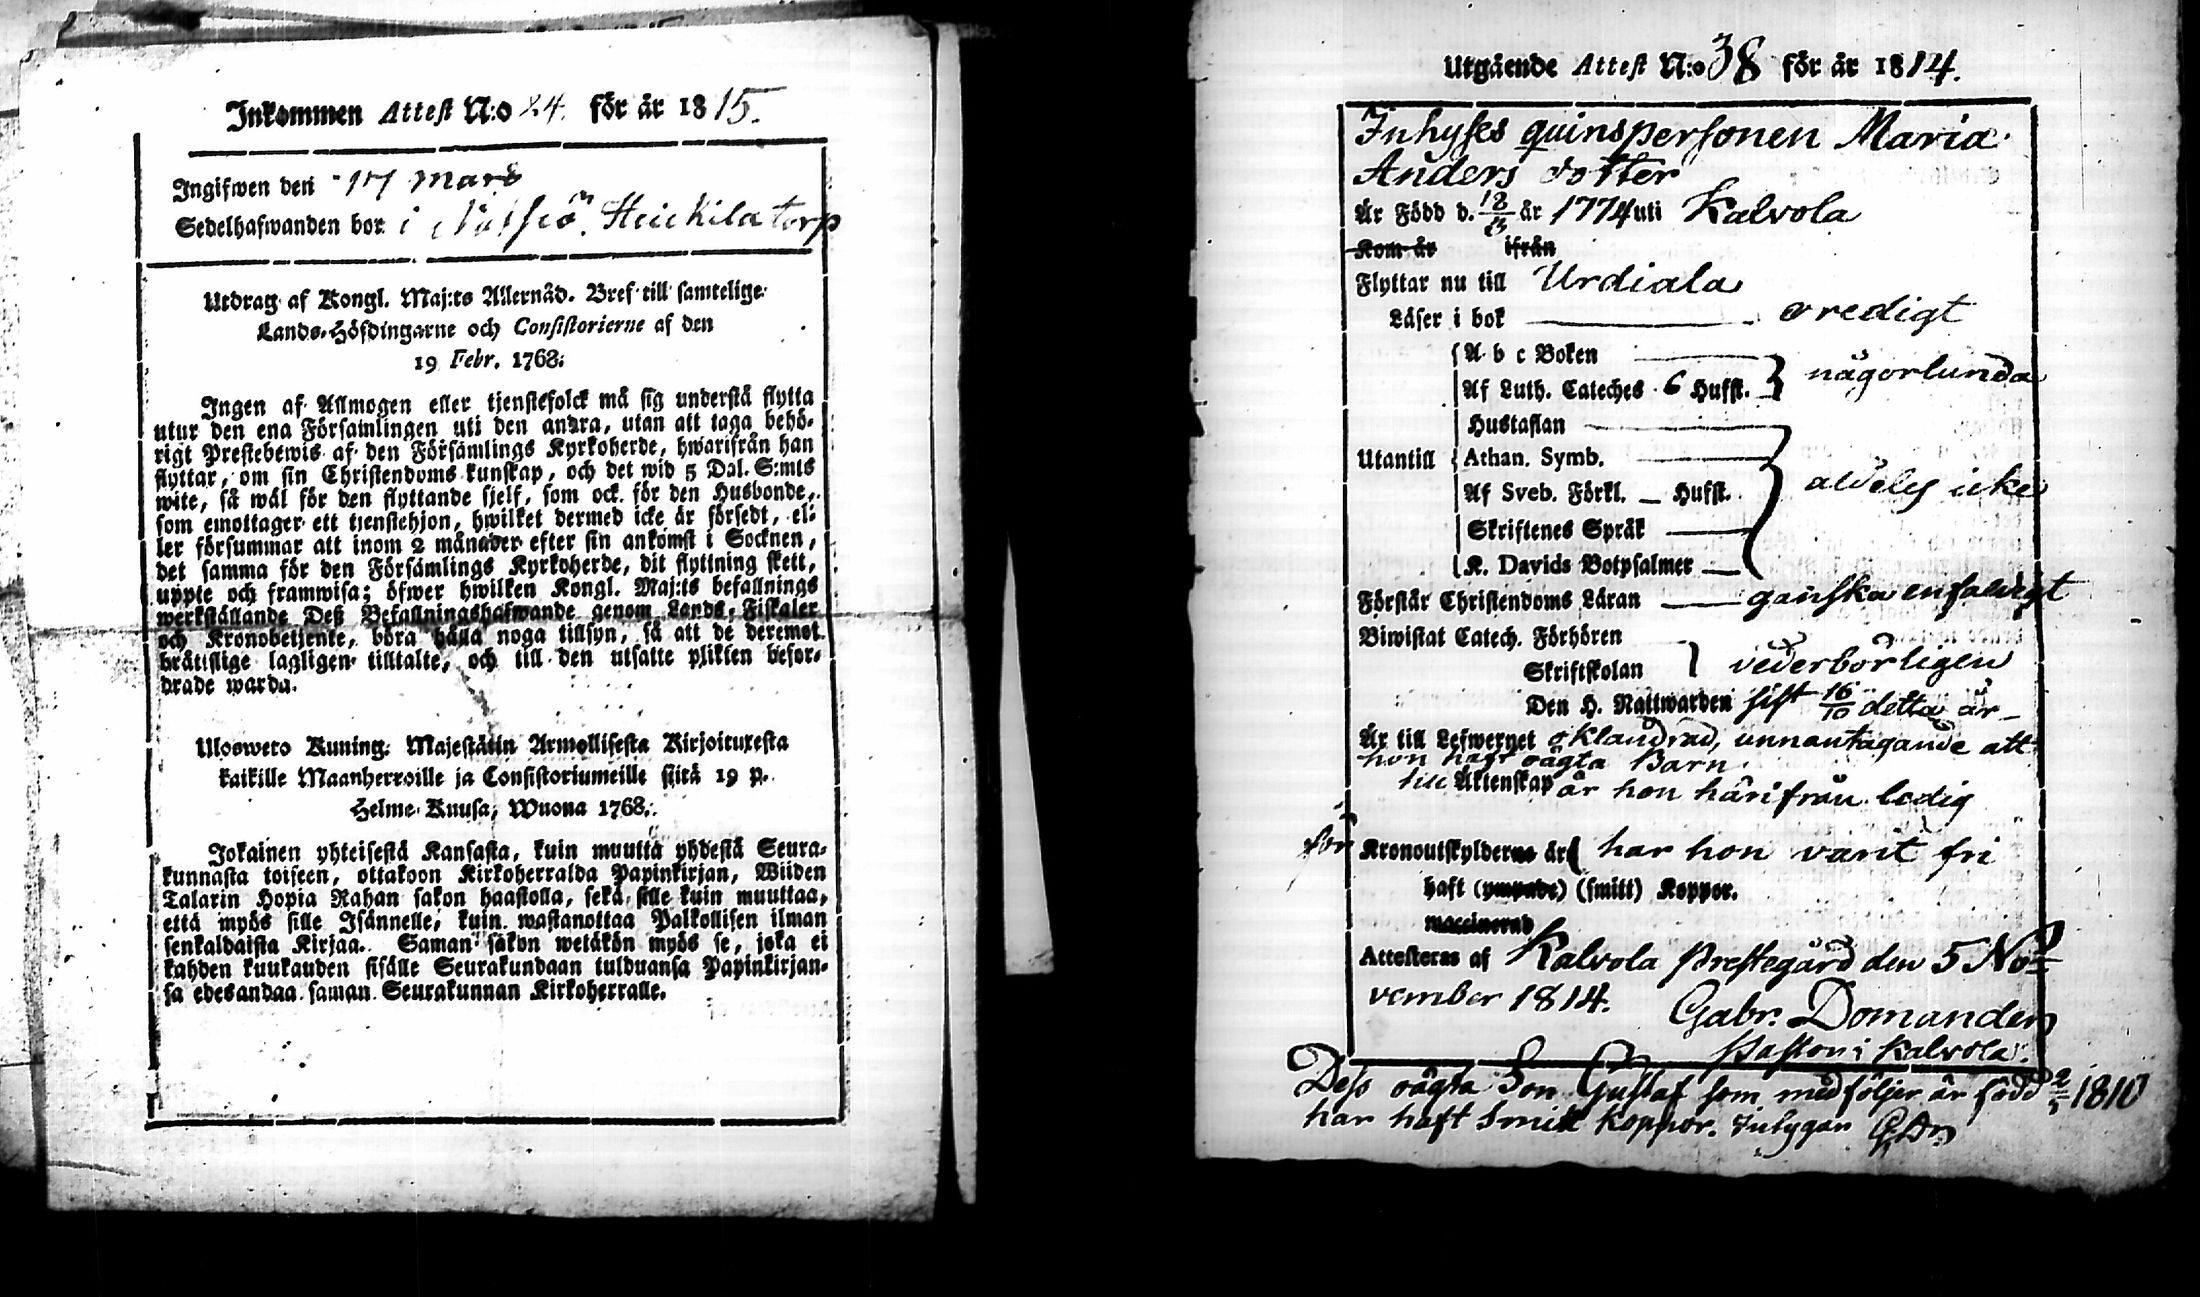 Inkommen Attest N:o 24. för år 1815.
Ingifwen den 17 Mars
Sedelhafwanden bor i Heickila torp
Utdrag af Kongl. Maj:ts Allernåd. Bref till samtelige
Lands-Höfdingarne och Consistorierne af den
19 Febr. 1768.
Ingen af Allmogen eller tjenstefolck må sig understå flytta
utur den ena Församlingen uti den andra, utan att taga behö-
rigt Prestebewis af den Församlings Kyrkoherde, hwarifrån han
flyttar, om sin Christendoms kunskap, och det wid 5 Dal. S:mts
wite, så wäl för den flyttande sjelf, som ock för den Husbonde,
som emottager ett tjenstehjon, hwilket dermed icke är försedt, el-
ler försummar att inom 2 månader efter sin ankomst i Socknen,
det samma för den Församlings Kyrkoherde, dit flyttning skett,
uppte och framwisa; öfwer hwilken Kongl. Maj:ts befallnings
werkställande Deß Befallningshafwande genom Lands-Fiskaler
och Kronobetjente, böra hålla noga tillsyn, så att de deremot
bråttslige lagligen tilltalte, och till den utsatte plikten befor-
drade warda.
Ulosweto Kuning. Majestätin Armollisesta Kirjoituxesta
kaikille Maanherroille ja Consistoriumeille siitä 19 p.
Helme-Kuusa, Wuona 1768.
Jokainen yhteisestä Kansasta, kuin muutta yhdestä Seura-
kunnasta toiseen, ottakoon Kirkoherralda Papinkirjan, Wiiden
Talarin Hopia Rahan sakon haastolla, sekä sille kuin muuttaa,
että myös sille Isännelle, kuin wastanottaa Palkollisen ilman
senkaldaista Kirjaa. Saman sakon wetäkön myös se, joka ei
kahden kuukauden sisälle Seurakundaan tulduansa Papinkirjan-
sa edesandaa saman Seurakunnan Kirkoherralle.
Utgående Attest N:o 38 för år 1814.
Inhyses quinspersonen Maria
Anders dotter
Är Född d. 18/3 år 1774 uti Kalvola
Kom år ifrån
Flyttar nu till Urdiala
Läser i bok oredigt
A b c Boken
Af Luth. Cateches 6 Hufst. någorlunda
Hustaflan
Utantill Athan. Symb.
Af Sveb. Förkl. Hufst. aldeles icke
Skriftenes Språk
K. Davids Botpsalmer
Förstår Christendoms Läran ganska enfaldigt
Biwistat Catech. Förhören
Skriftskolan vederbörligen
Den H. Nattwarden sist 16/10 detta år
Är till Lefwernet oklandrad, unnantagande att
hon haft oägta Barn.
till Äktenskap är hon härifrån ledig
för Kronoutskylderne är har hon varit fri
haft (ympade) (smitt) Koppor.
vaccinerad
Attesteras af Kalvola Prestegård den 5 No-
vember 1814. Gabr. Domander
Pastor i Kalvola.
Dess oägta Son Gustaf som medföljer är född 2/5 1810
har haft Smitt koppor.